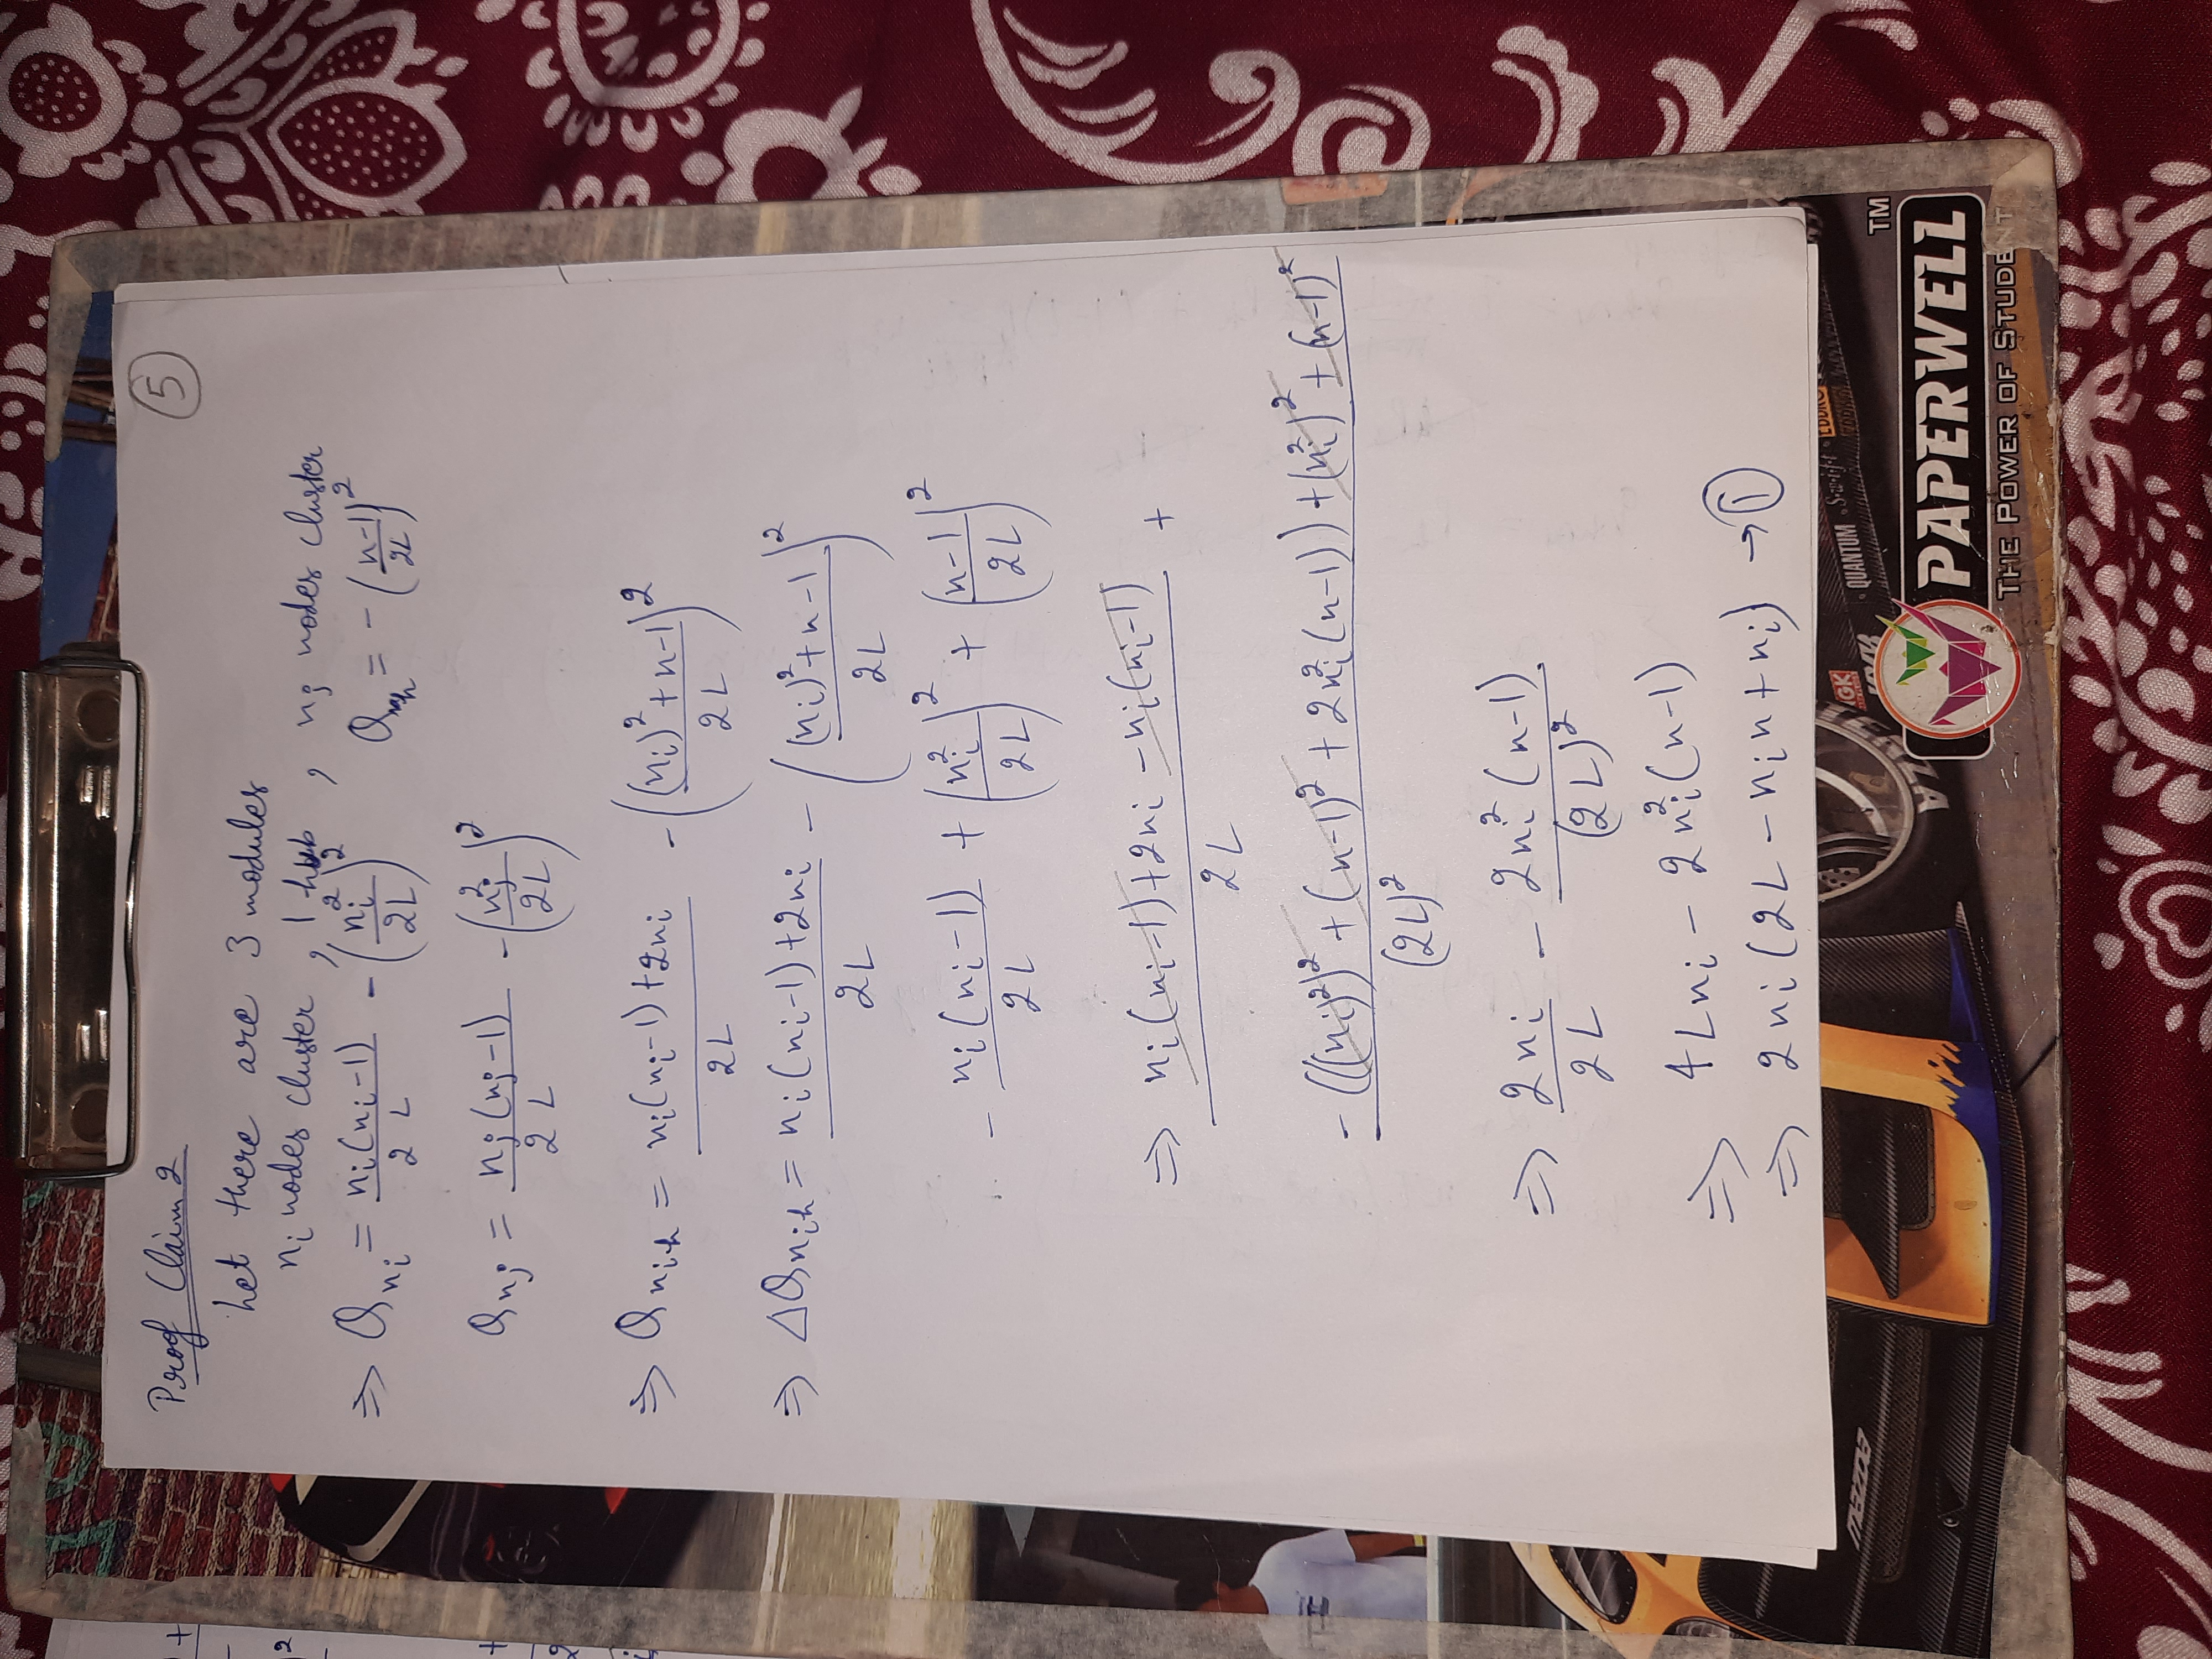 Proof Claim 2
5
Let there are 3 modules
ni nodes cluster , 1 hub , nj nodes cluster
⇒ Q_ni = ni(ni-1)/2L - (ni²/2L)² Q_h = - (n-1/2L)²
Q_nj = nj(nj-1)/2L - (nj²/2L)²
⇒ Q_nih = ni(ni-1)+2ni/2L - ((ni)²+n-1/2L)²
⇒ ΔQ_nih = ni(ni-1)+2ni/2L - ((ni)²+n-1/2L)²
- ni(ni-1)/2L + (ni²/2L)² + (n-1/2L)²
⇒ ni(ni-1)+2ni-ni(ni-1)/2L +
-(((ni)²)² + (n-1)² + 2ni²(n-1)) + (ni²)² + (n-1)²/(2L)²
⇒ 2ni/2L - 2ni²(n-1)/(2L)²
⇒ 4Lni - 2ni²(n-1)
⇒ 2ni(2L-nin+ni) → ①
QUANTUM
Swift
TM
PAPERWELL
THE POWER OF STUDENT